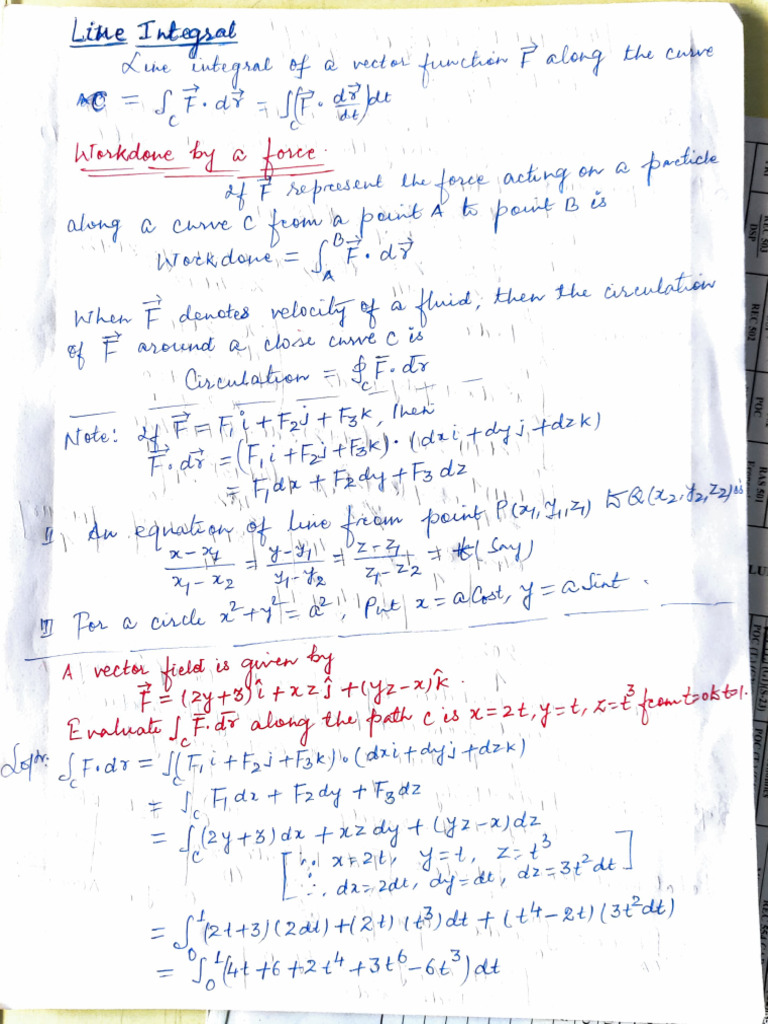 Line Integral
Line integral of a vector function F⃗ along the curve
C = ∫_C F⃗ · dr⃗ = ∫_C (F⃗ · dr⃗/dt) dt
Workdone by a force.
If F⃗ represent the force acting on a particle
along a curve C from a point A to point B is
Workdone = ∫_A^B F⃗ · dr⃗
When F⃗ denotes velocity of a fluid, then the circulation
of F⃗ around a close curve C is
Circulation = ∮_C F̄ · dr̄
Note: If F⃗ = F₁i + F₂j + F₃k, then
F⃗ · dr⃗ = (F₁i + F₂j + F₃k) · (dxi + dyj + dzk)
= F₁dx + F₂dy + F₃dz
II An equation of line from point P(x₁, y₁, z₁) to Q(x₂, y₂, z₂) is
(x - x₁)/(x₁ - x₂) = (y - y₁)/(y₁ - y₂) = (z - z₁)/(z₁ - z₂) = t (Say)
III For a circle x² + y² = a², Put x = a Cost, y = a Sint.
A vector field is given by
F⃗ = (2y + 3)î + xzĵ + (yz - x)k̂.
Evaluate ∫_C F̄ · dr̄ along the path c is x = 2t, y = t, z = t³ from t=0 to t=1.
Solⁿ: ∫_C F · dr = ∫_C (F₁i + F₂j + F₃k) · (dxi + dyj + dzk)
= ∫_C F₁dx + F₂dy + F₃dz
= ∫_C (2y + 3)dx + xz dy + (yz - x)dz
[∵ x = 2t, y = t, z = t³
∴ dx = 2dt, dy = dt, dz = 3t²dt]
= ∫₀¹ (2t + 3)(2dt) + (2t)(t³)dt + (t⁴ - 2t)(3t²dt)
= ∫₀¹ (4t + 6 + 2t⁴ + 3t⁶ - 6t³)dt
REC 503
DSP
REC 502
RAS 501